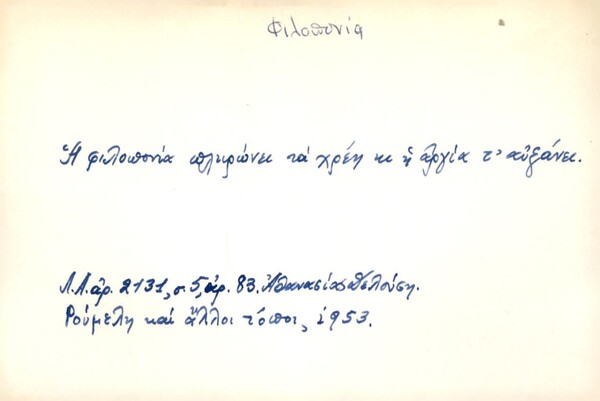 Φιλοπονία
Ἡ φιλοπονία πληρώνει τά χρέη κι ἡ ἀργία τ' αὐξάνει.
Λ.Λ. ἀρ. 2131, σ. 5, ἀρ. 83.
Ρούμελη καί ἄλλοι τόποι, 1953.